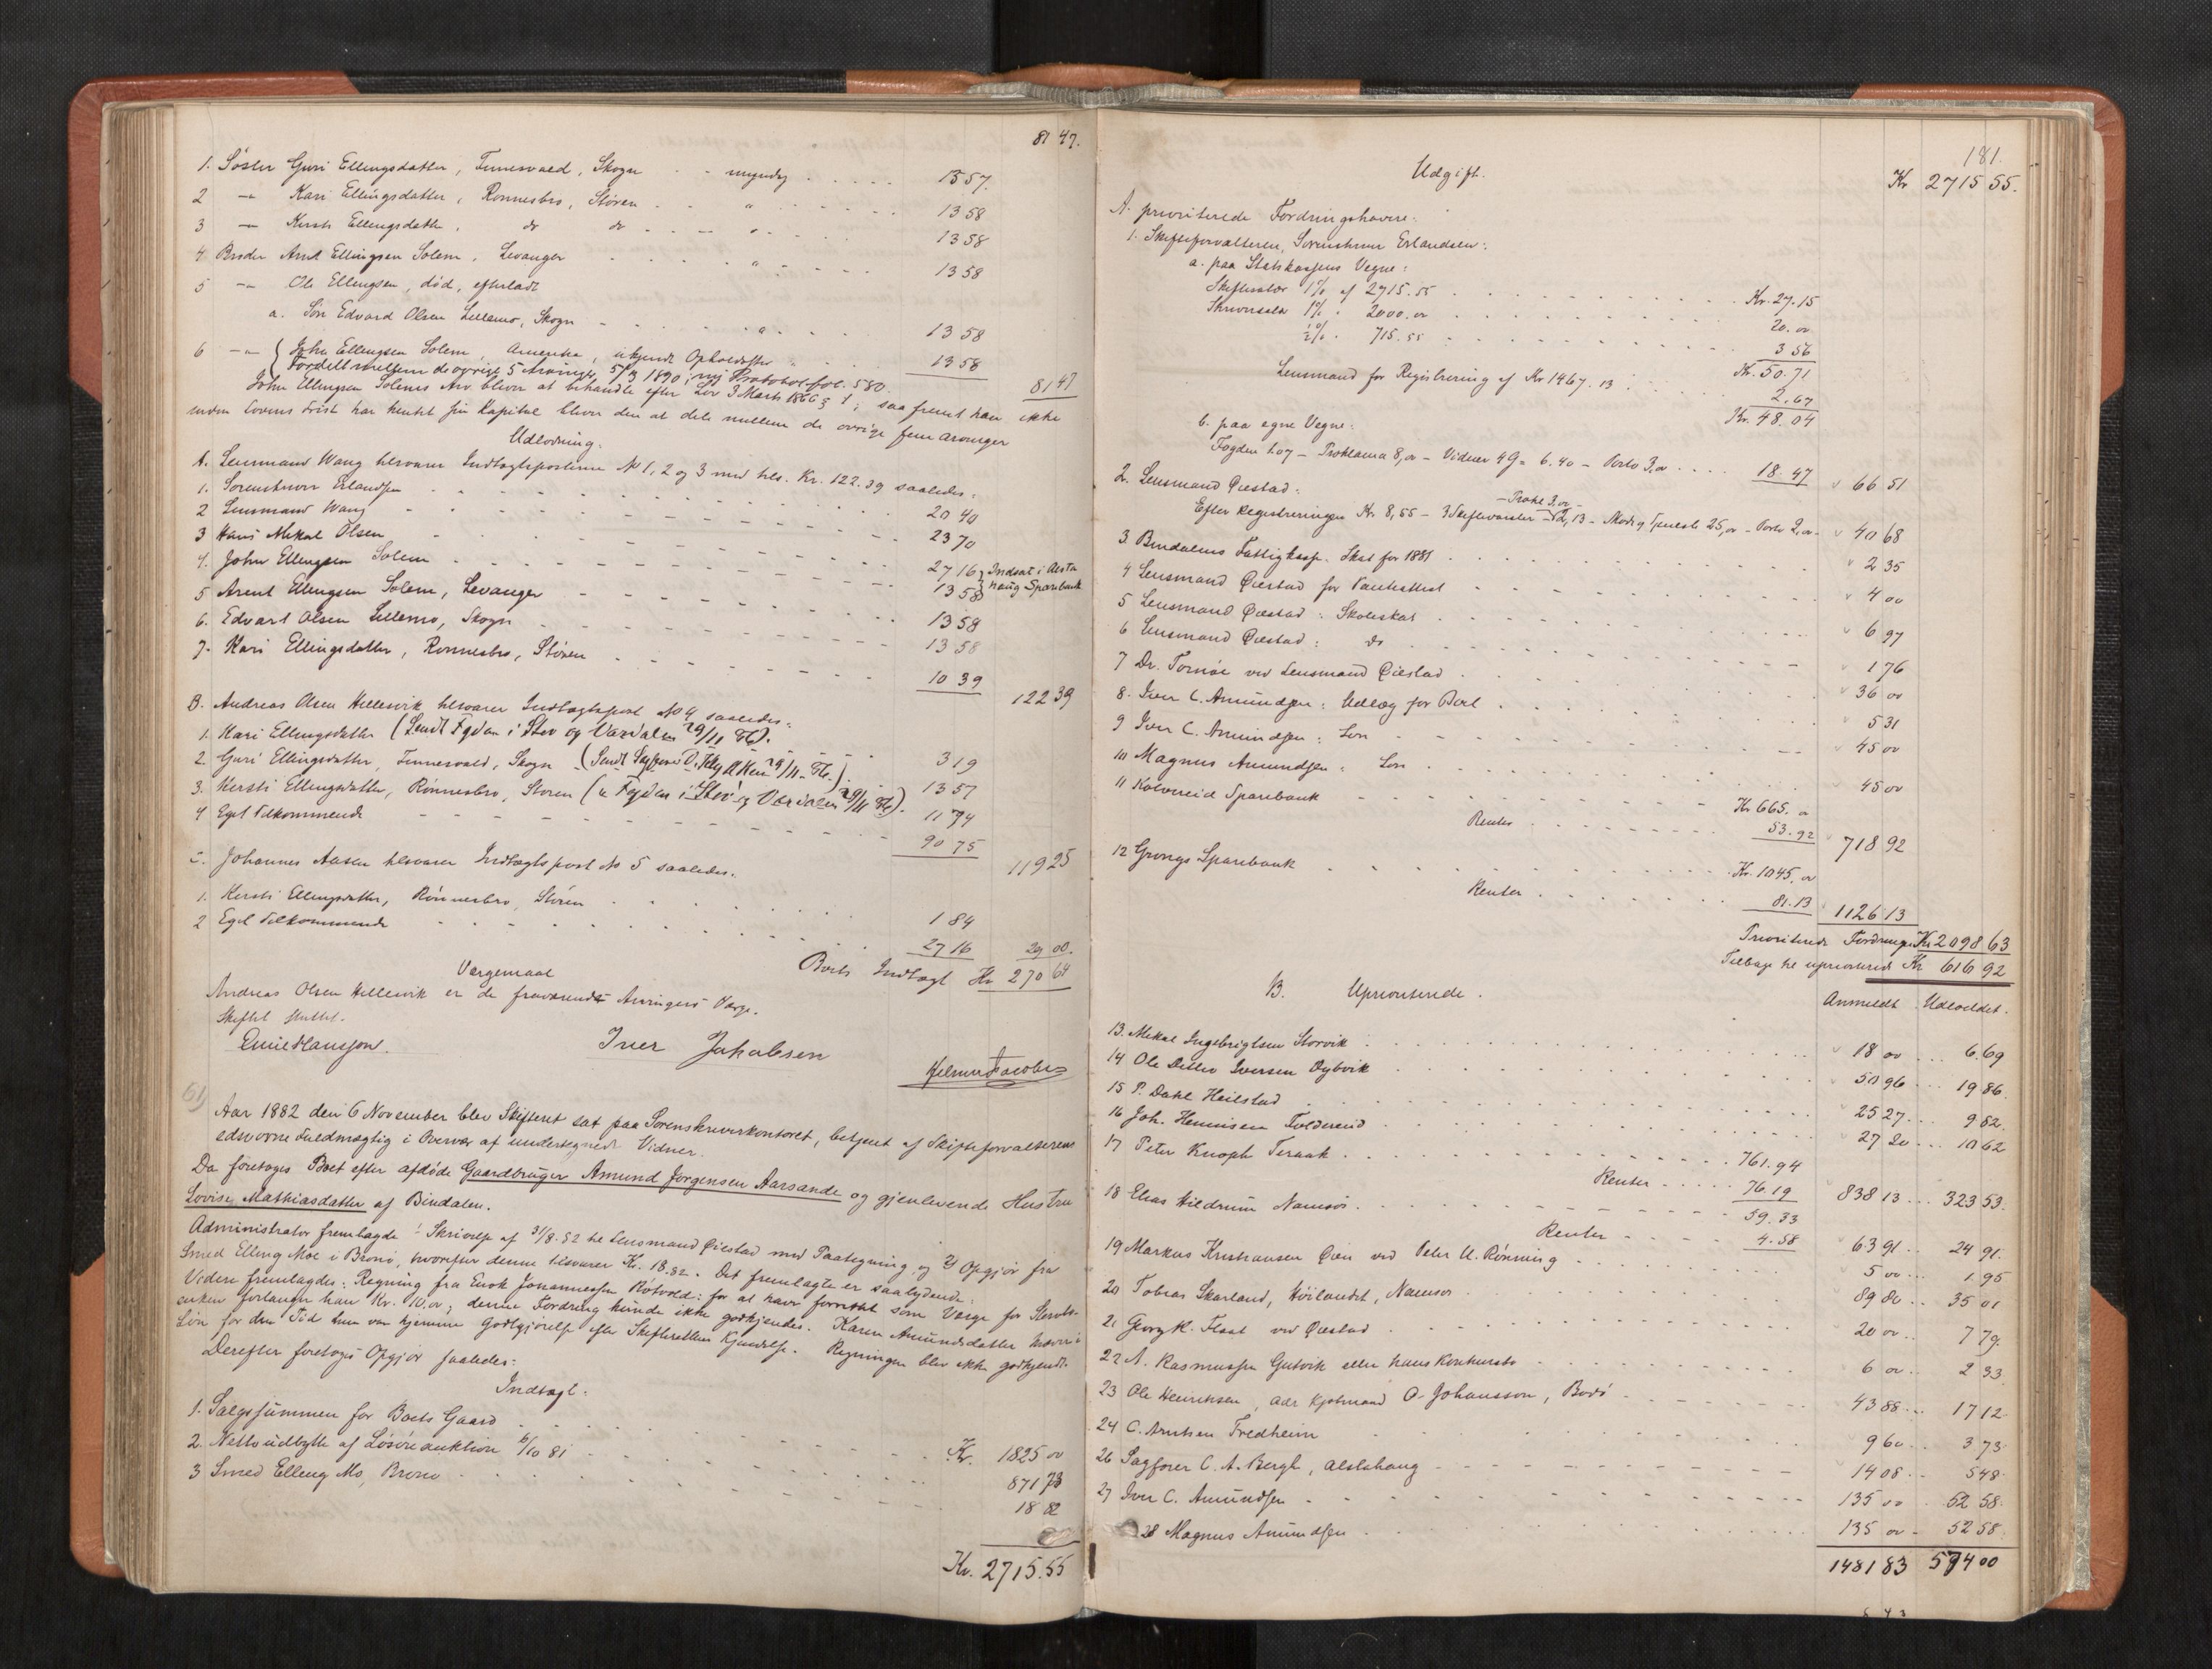 81 47.
1. Søster Guri Ellingsdatter, Finnesvald, Skogn - - myndig . . . . . 13 57.
2 — Kari Ellingsdatter, Rønnesbro, Støren - - " . . . . . 13 58
3 — Kirsti Ellingsdatter, do do - - " . . . . 13 58
4 Broder Arnt Ellingsen Solem, Levanger . . . " . . . . 13 58
5 — Ole Ellingsen, død, efterladt
a. Søn Edvard Olsen Lillemo, Skogn - - . . " . . . 13 58
6 — John Ellingsen Solem, Amerika, ukjendt Opholdssted . . 13 58
Fordelt mellem de øvrige 5 Arvinger 5/3 1890, ny Protokol fol. 580.
81 47
John Ellingsen Solems Arv bliver at behandle efter Lov 3 Marts 1866 § 1; saafremt han ikke
inden Lovens Frist har hentet sin Kapital bliver den at dele mellem de øvrige fem Arvinger
Udlodning.
A. Lensmand Wang tilsvarer Indtægtsposterne No 1, 2 og 3 med tils. Kr. 122.39 saaledes:
1. Sorenskriver Erlandsen . . . 20 40
2 Lensmand Wang . . . 23 70
3 Hans Mikal Olsen . . . 27 16
4. John Ellingsen Solem . . . 13 58 Indsat i Alstahaug Sparebank
5 Arent Ellingsen Solem, Levanger . . . 13 58
6. Edvart Olsen Lillemo, Skogn . . . 13 58
7. Kari Ellingsdatter, Rønnesbro, Støren . . . 10 39
122 39
B. Andreas Olsen Hellesvik tilsvarer Indtægtspost No 4 saaledes:
1. Kari Ellingsdatter (Sendt Fogden i Stør og Værdalen 29/11 ). . . 3 19
2. Guri Ellingsdatter, Finnesvald, Skogn (Sendt 29/11 ). 13 57
3. Kersti Ellingsdatter, Rønnesbro, Støren (" Fogden i Stør og Værdalen 29/11 ). 11 74
4 Eget Tilkommende . . . 90 75
119 25
C. Johannes Aasen tilsvarer Indtægtspost No 5 saaledes.
1. Kersti Ellingsdatter, Rønnesbro, Støren . . . 1 84
2 Eget Tilkommende . . . 27 16 29 00.
Boets Indtægt Kr 270 64
Værgemaal
Andreas Olsen Hellesvik er de fraværende Arvingers Værge.
Skiftet sluttet.
Emil Hansson. Iver Jakobsen Hilmar Jacobsen
61
Aar 1882 den 6 November blev Skifteret sat paa Sorenskriverkontoret, betjent af Skifteforvalterens
edsvorne Fuldmægtig i Overvær af undertegnede Vidner.
Da foretoges Boet efter afdøde Gaardbruger Amund Jørgensen Aarsande og gjenlevende Hustru
Lovise Mathiasdatter af Bindalen.
Administrator fremlagde 1 Skrivelse af 31/8.82 til Lensmand Øiestad med Paategning og 2) Opgjør fra
Smed Elling Moe i Brønø, hvorefter denne tilsvarer Kr. 18.82. Det fremlagte er saalydende:
Videre fremlagdes: Regning fra Enok Johannessen Røtvold: for at have forrettet som Værge for Sterbo-
enken forlanger han Kr. 10,00; denne Fordring kunde ikke godkjendes. Karen Amundsdatter
Løn for den Tid hun var hjemme Godtgjørelse efter Skifterettens Kjendelse. Regningen blev ikke godkjendt.
Derefter foretoges Opgjør saaledes:
Indtægt:
1. Salgssummen for Boets Gaard . . . Kr. 1825 00
2. Nettoudbytte af Løsøreauktion 6/10 81 . . . 871 73
3 Smed Elling Mo, Brønø . . . 18 82
Kr. 2715.55
181.
Udgift. Kr 2715 55.
A. prioriterede Fordringshavere:
1. Skifteforvalteren, Sorenskriver Erlandsen:
a. paa Statskassens Vegne:
Skiftesalær 1% af 2715.55 . . . Kr. 27.15
Skriversalær 1% " 2000.00 . . . 20.00
½% " 715.55 . . . 3 56
Kr. 50.71
Lensmand for Registrering af Kr 1467.13 . . . 2.67
Kr. 48.04
b. paa egne Vegne:
Fogden 1.07 — Proklama 8,00 — Vidner 49 = 6.40 — Porto 3,00 . . . 18.47 66 51
2. Lensmand Øiestad:
— Prokl 3.00 —
Efter Registreringen Kr 8,55 — 3 Skiftevarsler 2,13 — 25,00 — Porto 2,00 - 40 68
3. Bindalens Fattigkasse. Skat for 1881 . . . 2 35
4 Lensmand Øiestad for Panteattest . . . 4 00
5 Lensmand Øiestad: Skoleskat . . . 6 97
6 Lensmand Øiestad: do . . . 1 76
7 Dr. Tornøe ved Lensmand Øiestad . . . 36 00
8. Iver C. Amundsen: Udlæg for Boet . . . 5 31
9 Iver C. Amundsen: Løn . . . 45 00
10 Magnus Amundsen: Løn . . . 45 00
11 Kolvereid Sparebank . . . Kr 665. 00
Renter . . . 53.92 718 92
12 Grongs Sparebank . . . Kr. 1045,00
Renter . . . 81.13 1126 13
Prioriterede Fordringer Kr 2098 63
Tilbage til uprioriterede Kr 616 92
B. Uprioriterede. Anmeldt Udloddet.
13. Mikal Ingebrigtsen Storvik . . . 18 00 . . . 6.69
14 Ole Ditlev Iversen Bybvik . . . 50 96 . . . 19 86.
15 P. Dahl Heilstad . . . 25 27 . . . 9 82.
16 Joh. Henriksen Foldereid . . . 27 20 . . . 10 62
17 Peter Knoph Teraak . . . 761.94
Renter . . . 76.19 838 13 . . . 323 53.
18 Elias Hildrum Namsos . . . 59.33
Renter . . . 4.58 63 91 . . 24 91.
19 Markus Kristiansen Øien ved Peter U. Rønning . . . 5 00 . . . 1.95
20 Tobias Skarland, Høilandet, Namsos . . . 89 80 . . 35 01
21 Georg Kl. Float ved Øiestad . . . 20 00 . . 7 79.
22 A. Rasmussen Gutvik eller hans Konkursbo . . . 6 00 . . 2 33
23 Ole Henriksen, adr Kjøbmand O. Johansson, Bodø . . . 43 88 . . . 17 12
24 C. Arntsen Fredheim . . . 9 60 . . 3 73
26 Sagfører C. A. Bergh, Alstahaug . . . 14 08 . . 5 48
27 Iver C. Amundsen . . . 135 00 . . 52 58.
28 Magnus Amundsen . . . 135 00 - 52 58.
1481 83 574 00